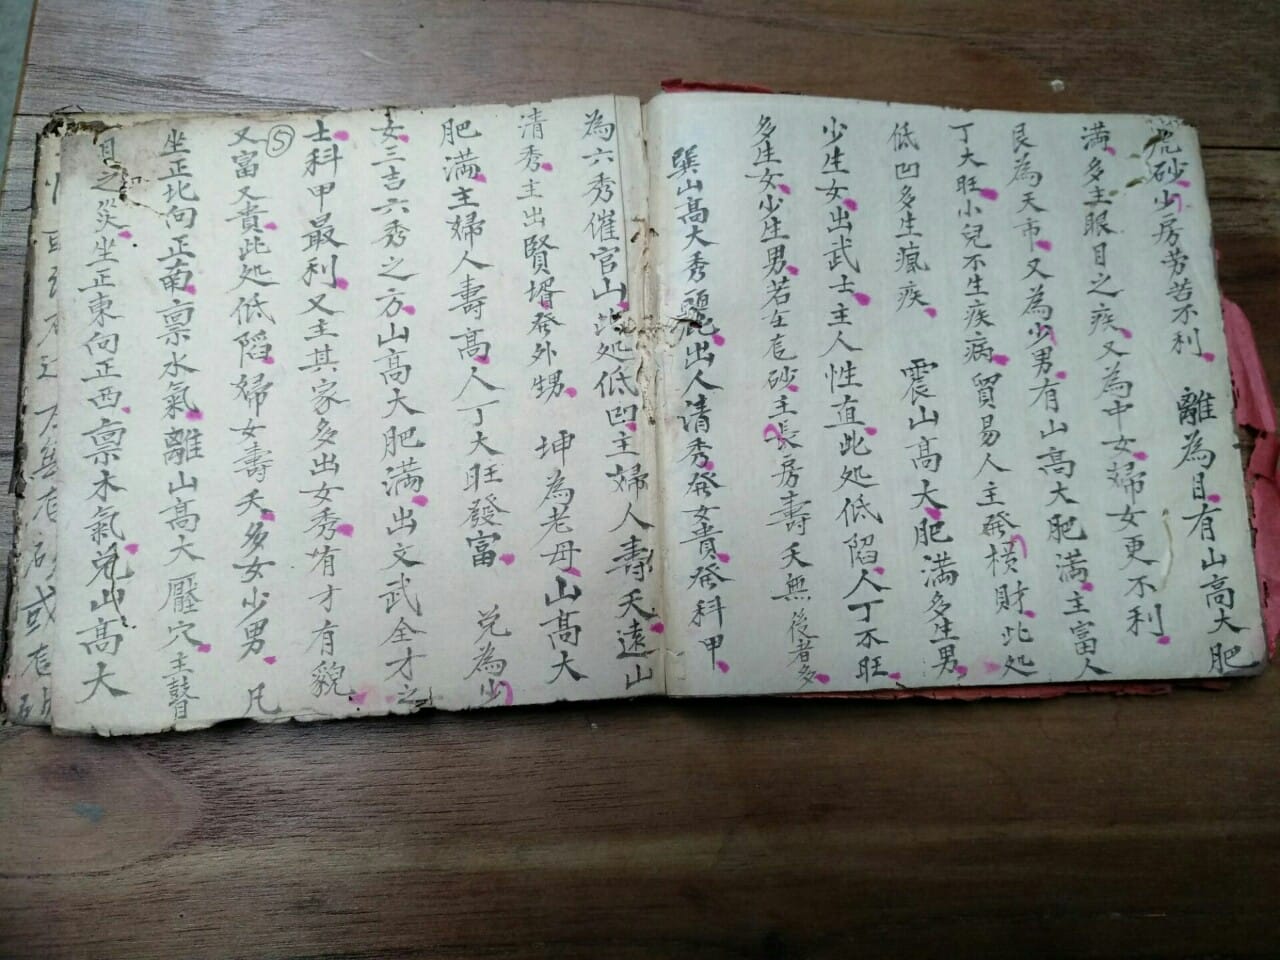 虎砂少房劳苦不利　離為目有山高大肥
满多主眼目之疾又為中女婦女更不利
艮為天市又為少男有山高大肥满主富人
丁大旺小兒不生疾病貿易人主發横財此処
低凹多生瘋疾　震山高大肥满多生男
少生女出武士主人性直此処低陷人丁不旺
多生女少生男若在虎砂主長房壽夭無後者多
巽山高大秀麗出人清秀發女貴發科甲
為六秀催官山此処低凹主婦人壽夭遠山
清秀主出賢壻發外甥　坤為老母山高大
肥满主婦人壽高人丁大旺發富　兑為少
女三吉六秀之方山高大肥满出文武全才之
士科甲最利又主其家多出女秀有才有貌
又富又貴此処低陷婦女壽夭多女少男　凡
⑤
坐正北向正南禀水氣離山高大壓穴主瞽
目之災坐正東向正西禀木氣兑山高大